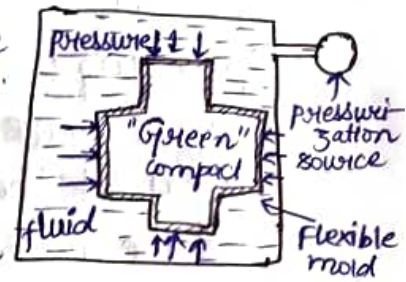 pressure
"Green"
compact
fluid
pressuri-
zation
source
Flexible
mold